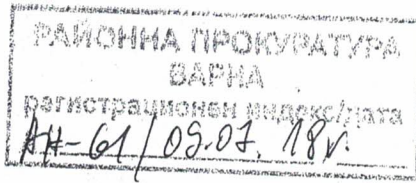 РАЙОННА ПРОКУРАТУРА
ВАРНА
регистрационен индекс/дата
АН-61/09.07.18г.